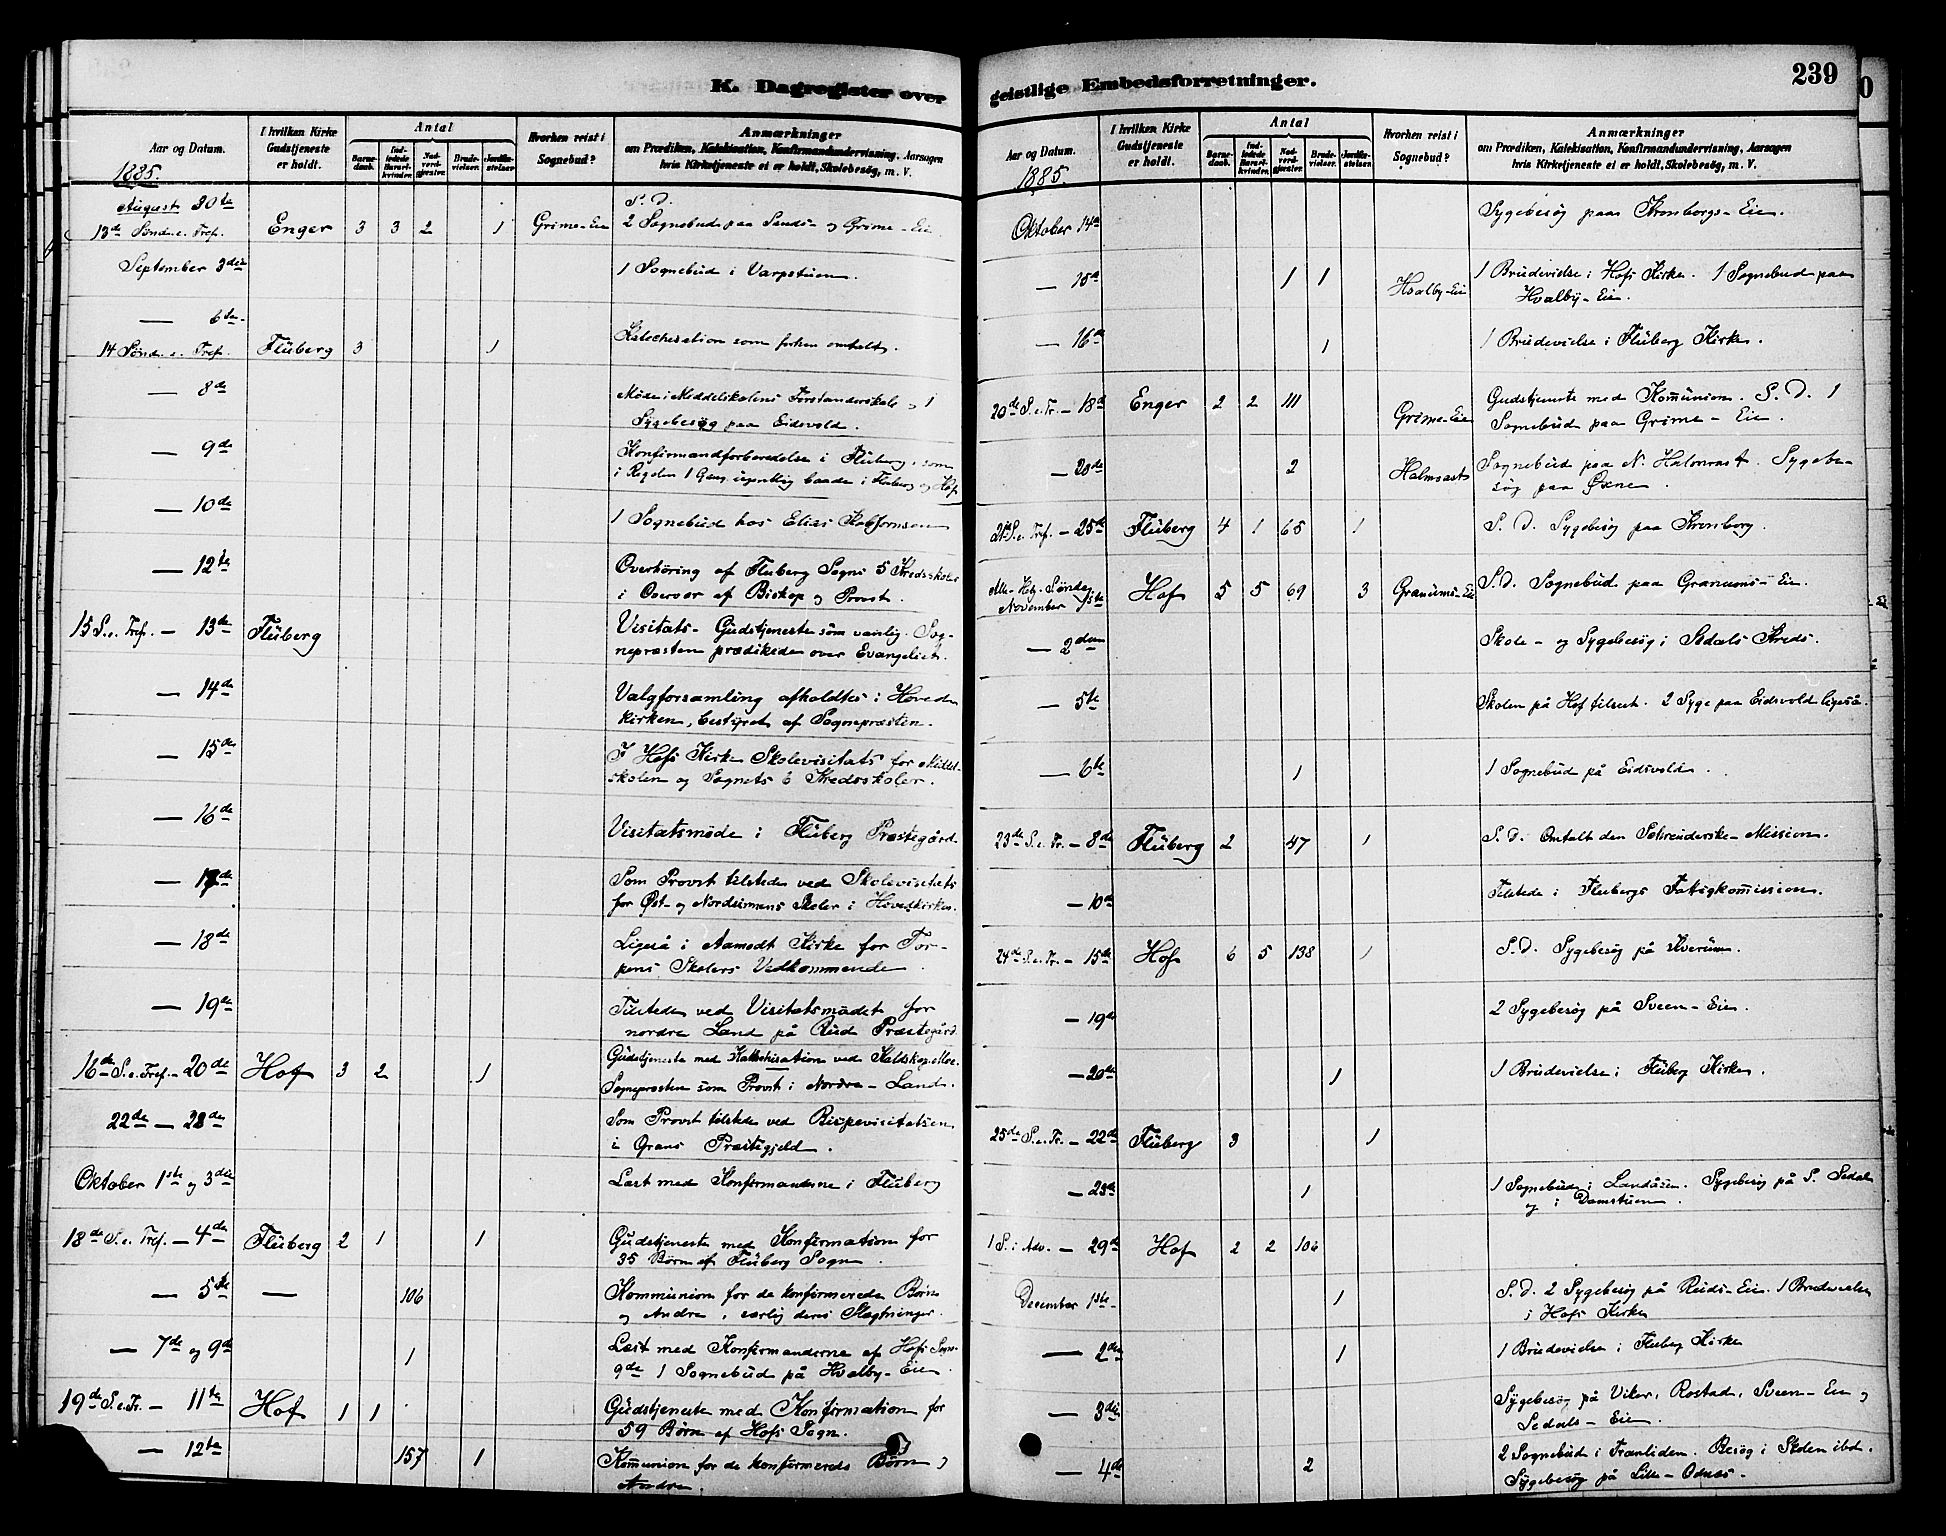 K. Dagregister over
Aar og Datum.
I hvilken Kirke Gudstjeneste er holdt.
Antal
Barnedaab.
Indledede Barselkvinder.
Nadverdgjester.
Brudevielser.
Jordfæstelser
Hvorhen reist i Sognebud?
Anmærkninger
om Prædiken, Katekisation, Konfirmandundervisning, Aarsagen
hvis Kirketjeneste ei er holdt, Skolebesøg, m. V.
1885.
August 30te S. D.
13de Sønd. e. Tref. Enger 3 3 2 1 Grime-Eie 2 Sognebud paa Sands- og Grime-Eie.
September 3die 1 Sognebud i Varpstuen.
— 6te
14 Sønd. e. Tref. Fluberg 3 1 Katechisation som forhen omtalt.
— 8de Møde i Middelskolens Forstanderskab og 1
Sygebesøg paa Eidsvold.
— 9de Konfirmandforberedelse i Fluberg, som
i Regelen 1 Gang ugentlig baade i Fluberg og Hof
— 10de 1 Sognebud hos Elias
— 12te Overhøring af Fluberg Sogns 5 Kredsskoler
i Overvær af Biskop og Provst.
15 S. e. Tref. — 13de Fluberg Visitats-Gudstjeneste som vanlig. Sog-
nepræsten prædikede over Evangeliet.
— 14de Valgforsamling afholdtes i Hoved-
kirken, bestyret af Sognepræsten.
— 15de I Hofs Kirke Skolevisitats for Middel-
skolen og Sognets 6 Kredsskoler.
— 16de Visitatsmøde i Fluberg Præstegård.
— 17de Som Provst tilstede ved Skolevisitats
for Øst- og Nordsinnens Skoler i Hovedkirken.
— 18de Ligeså i Aamodt Kirke for Tor-
pens Skolers Vedkommende.
— 19de Tilstede ved Visitatsmødet for
nordre Land på Rud Præstegård.
16de S. e. Tref. — 20de Hof 3 2 1 Gudstjeneste med Katechisation ved
Sognepræsten som Provst i Nordre-Land.
22de — 23de Som Provst tilstede ved Bispevisitatsen
i Grans Præstegjeld.
Oktober 1ste og 3die Læst med Konfirmanderne i Fluberg
18de S. e. Tref. — 4de Fluberg 2 1 1 Gudstjeneste med Konfirmation for
35 Børn af Fluberg Sogn.
— 5te — 106 Kommunion for de konfirmerede Børn
og Andre, særlig deres Slægtninger.
— 7de og 9de 1 Læst med Konfirmanderne af Hofs Sogn.
9de 1 Sognebud på Hvalby-Eie.
19de S. e. Tr. — 11te Hof 1 1 Gudstjeneste med Konfirmation for
59 Børn af Hofs Sogn.
— 12te 157 1 Kommunion for de konfirmerede Børn og
Andre.
geistlige Embedsforretninger.
239
Aar og Datum.
I hvilken Kirke Gudstjeneste er holdt.
Antal
Barnedaab.
Indledede Barselkvinder.
Nadverdgjester.
Brudevielser.
Jordfæstelser
Hvorhen reist i Sognebud?
Anmærkninger
om Prædiken, Katekisation, Konfirmandundervisning, Aarsagen
hvis Kirketjeneste ei er holdt, Skolebesøg, m. V.
1885.
Oktober 14de Sygebesøg paa Kronborgs-Eie.
— 15de 1 1 Hvalby-Eie 1 Brudevielse i Hofs Kirke. 1 Sognebud paa
Hvalby-Eie.
— 16de 1 1 Brudevielse i Fluberg Kirke.
20de S. e. Tr. — 18de Enger 2 2 111 Grime-Eie Gudstjeneste med Kommunion. S. D. 1
Sognebud paa Grime-Eie.
— 20de 2 Sognebud paa N. Sygebe-
søg paa Øxne.
21de S. e. Tref. — 25de Fluberg 4 1 65 1 S. D. Sygebesøg paa Kronborg.
Alle-Helg. Søndag
November 1ste Hof 5 5 69 3 Granums-Eie S. D. Sognebud paa Granums-Eie.
— 2den Skole- og Sygebesøg i Sedals Kreds.
— 5te Skolen på Hof tilseet. 2 Syge paa Eidsvold ligeså.
— 6te 1 1 Sognebud på Eidsvold.
23de S. e. Tr. — 8de Fluberg 2 47 1 S. D. Omtalt den Schreuderske-Mission.
— 10de Tilstede i Flubergs Fatigkommission.
24de S. e. Tr. — 15de Hof 6 5 138 1 S. D. Sygebesøg på Kverum.
— 19de 2 Sygebesøg på Sveen-Eie.
— 20de 1 1 Brudevielse i Fluberg Kirke.
25de S. e. Tr. — 22de Fluberg 3 1
— 23de 1 1 Sognebud i Landåsen. Sygebesøg på S. Sedal
og i Damstuen.
1 S. i Adv. — 29de Hof 2 2 106
December 1ste 1 S. D. 2 Sygebesøg på Ruds-Eie. 1 Brudevielse
i Hofs Kirke
— 2den 1 1 Brudevielse i Fluberg Kirke
— 3die Sygebesøg på Viker, Rostad, Sveen-Eie og
Sedals-Eie.
— 4de 2 2 Sognebud i Trænliden. Besøg i Skolen ibd.
Sygebesøg på Lille-Odnæs.